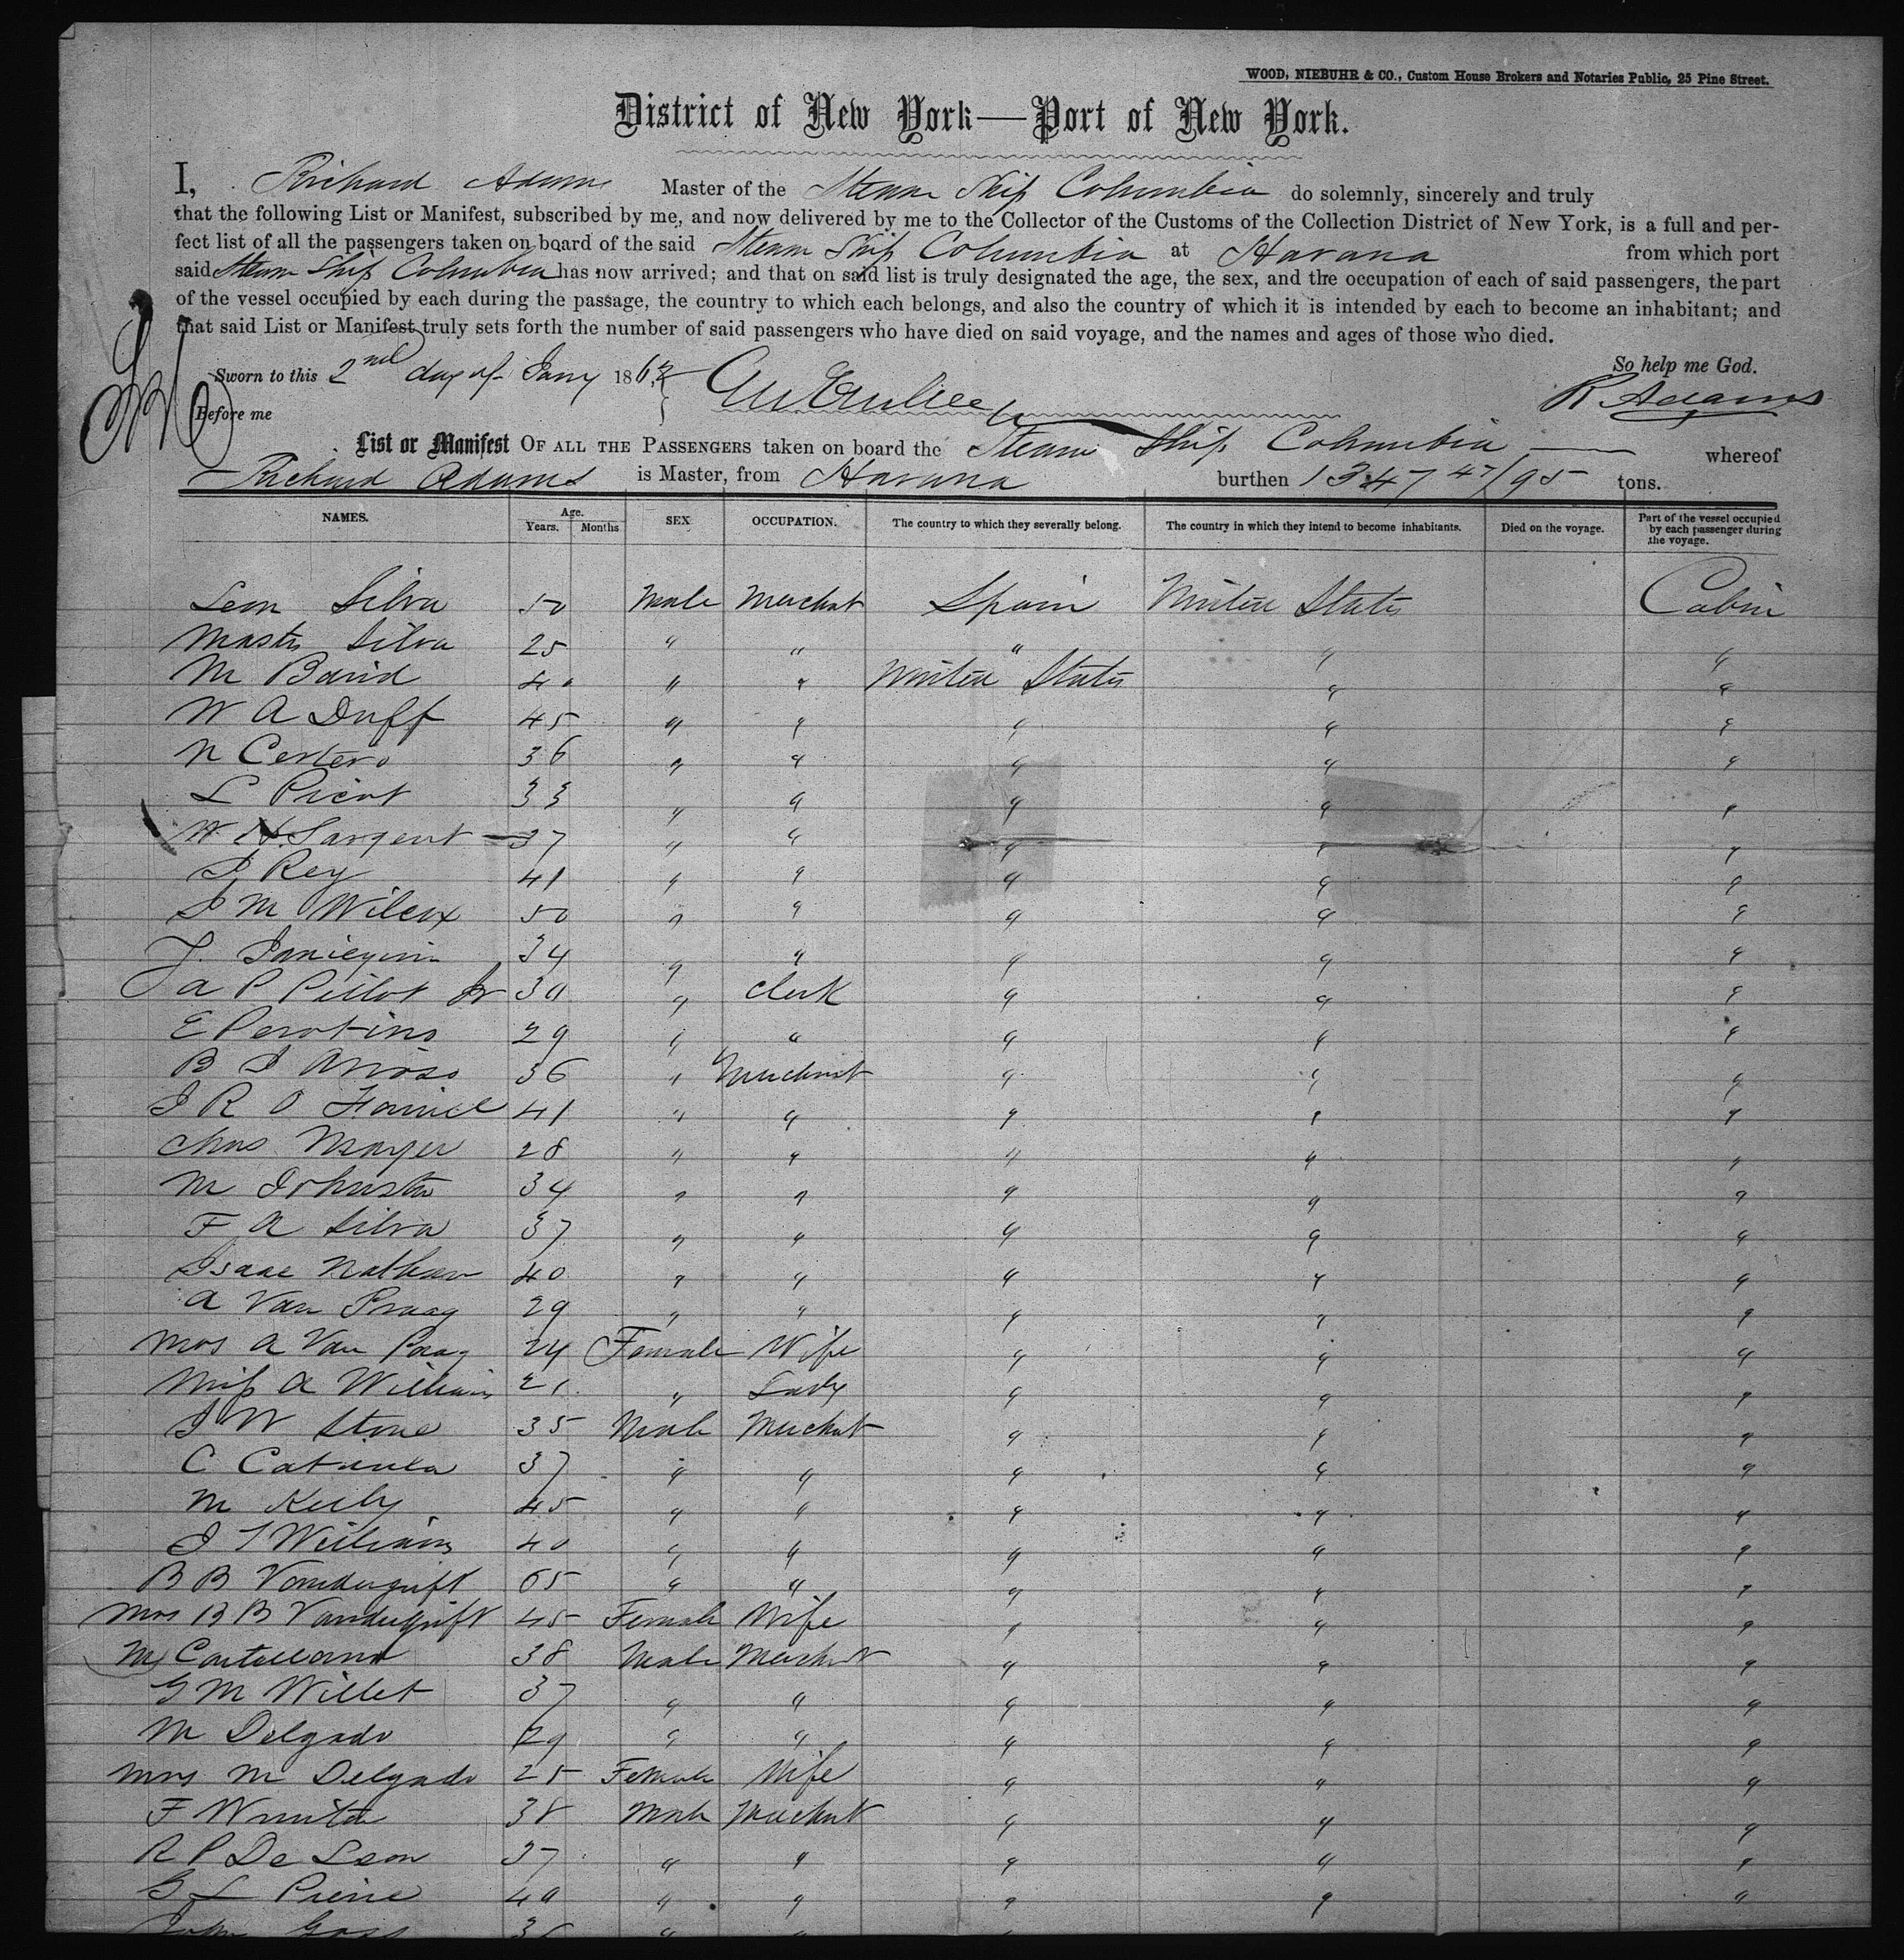 WOOD, NIEBUHR & CO., Custom House Brokers and Notaries Public, 25 Pine Street.
District of New York—Port of New York.
I, Richard Adams Master of the Steam Ship Columbia do solemnly, sincerely and truly
that the following List or Manifest, subscribed by me, and now delivered by me to the Collector of the Customs of the Collection District of New York, is a full and per-
fect list of all the passengers taken on board of the said Steam Ship Columbia at Havana from which port
said Steam Ship Columbia has now arrived; and that on said list is truly designated the age, the sex, and the occupation of each of said passengers, the part
of the vessel occupied by each during the passage, the country to which each belongs, and also the country of which it is intended by each to become an inhabitant; and
that said List or Manifest truly sets forth the number of said passengers who have died on said voyage, and the names and ages of those who died.
So help me God.
Sworn to this 2nd day of Jany 186
R Adams
Before me
List or Manifest OF ALL THE PASSENGERS taken on board the Steam Ship Columbia whereof
Richard Adams is Master, from Havana burthen 1347 47/95 tons.
NAMES. Age. Years. Months SEX OCCUPATION. The country to which they severally belong. The country in which they intend to become inhabitants. Died on the voyage. Part of the vessel occupied by each passenger during the voyage.
Leon Silva 50 Male Merchat Spain United States Cabin
Master Silva 25 " " " " "
M Baird 40 " " United States " "
W A Duff 45 " " " " "
N Certero 36 " " " " "
L Picot 33 " " " " "
W. H. Sargent 37 " " " " "
J Rey 41 " " " " "
J M Wilcox 50 " " " " "
J. 34 " " " " "
A P Pillot Jr 30 " Clerk " " "
E Perotins 29 " " " " "
B J 36 " Merchant " " "
J R O 41 " " " " "
Chas Mayer 28 " " " " "
M Johnston 34 " " " " "
F A Silva 37 " " " " "
Isaac Nathan 40 " " " " "
A Van Praag 29 " " " " "
Mrs A Van Praag 24 Female Wife " " "
Miss A Williams 21 " Lady " " "
J W Stone 35 Male Merchat " " "
C 37 " " " " "
M Keely 45 " " " " "
J T Williams 40 " " " " "
B B Vandergrift 65 " " " " "
Mrs B B Vandergrift 45 Female Wife " " "
M Castellano 38 Male Merchat " " "
G M Willet 37 " " " " "
M Delgado 29 " " " " "
Mrs M Delgado 25 Female Wife " " "
F 38 Male Merchat " " "
R P De Leon 37 " " " " "
G L Pierie 40 " " " " "
John 36 " "